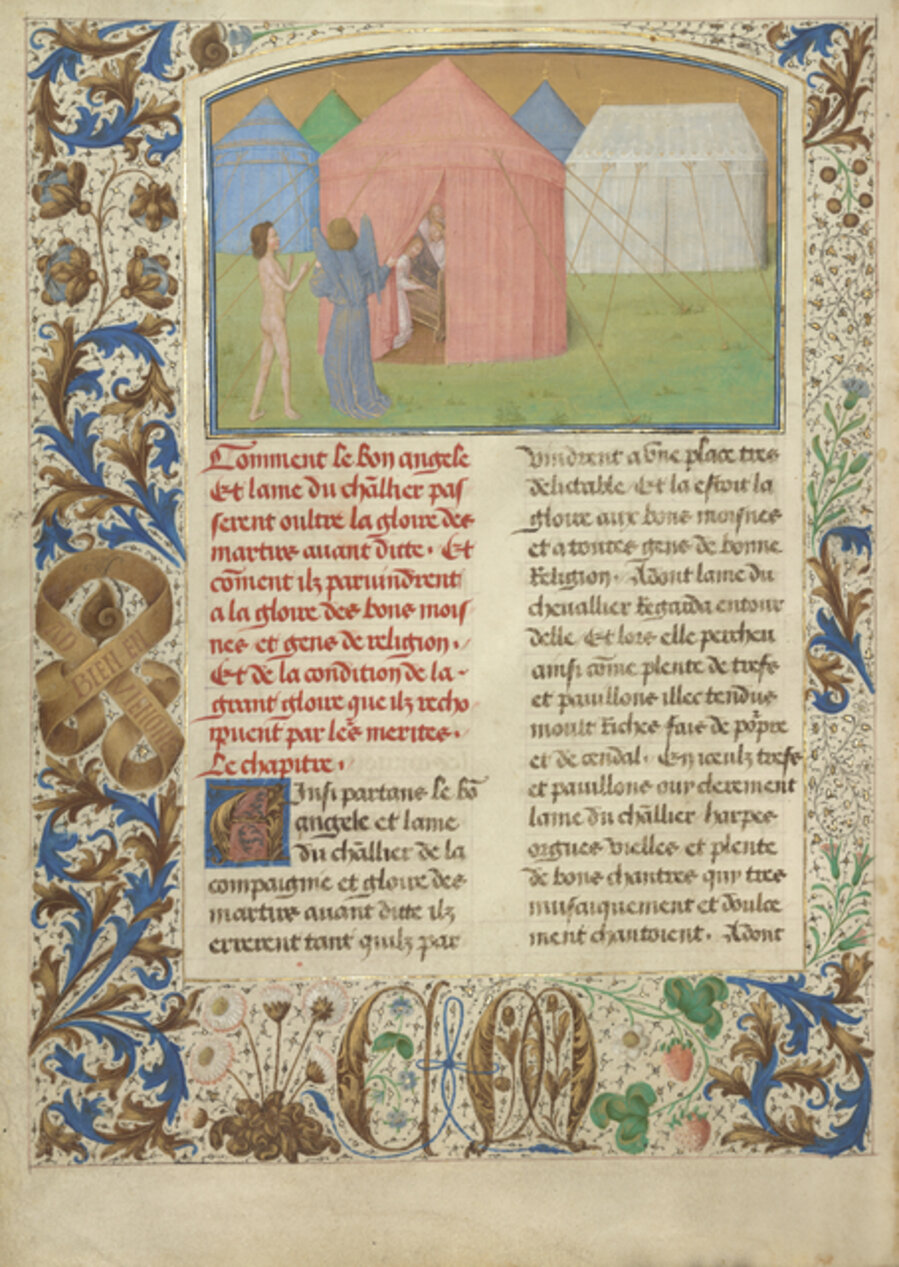 Comment le bon angele
Et lame du chãllier pas
serent oultre la gloire des
martirs auant ditte. Et
cõment ilz paruindrent
a la gloire des bons mois
nes et gens de religion.
Et de la condition de la
grant gloire que ilz recho
ipuent par les merites.
Le chapitre.
Ainsi partans le bõ
angele et lame
du chãllier de la
compaignie et gloire des
martirs auant ditte ilz
errerent tant quilz par
vindrent a vne place tres
delictable. Et la estoit la
gloire aux bons moisnes
et a toutes gens de bonne
Religion. Adont lame du
cheuallier Regarda entour
delle. Et lors elle percheu
ainsi cõme plente de trefs
et pauillons illec tendus
moult Riches fais de põpre
et de cendal. En iceulz trefs
et pauillons ouy clerement
lame du chãllier harpes
orgues vielles et plente
de bons chantres quy tres
musaiquement et doulce
ment chantoient. Adont
BIEN EN
AVIENGNE
CM